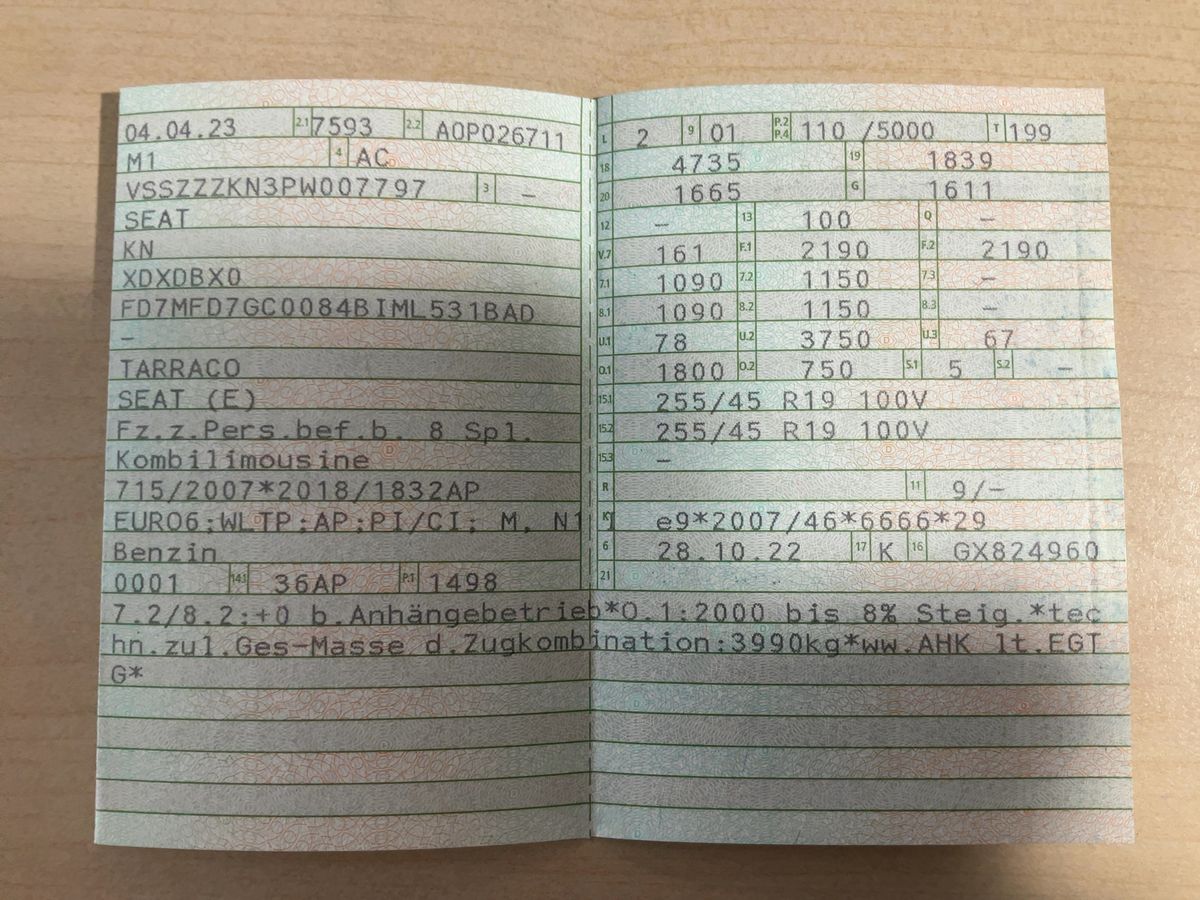 04.04.23 2.1 7593 2.2 AOP026711
M1 4 AC
VSSZZZKN3PW007797 3 –
SEAT
KN
XDXDBX0
FD7MFD7GC0084BIML531BAD
–
TARRACO
SEAT (E)
Fz.z.Pers.bef.b. 8 Spl.
Kombilimousine
715/2007*2018/1832AP
EURO6;WLTP;AP;PI/CI; M, N1 I
Benzin
0001 14.1 36AP P.1 1498
L 2 9 01 P.2 P.4 110 /5000 T 199
18 4735 19 1839
20 1665 G 1611
12 – 13 100 Q –
V.7 161 F.1 2190 F.2 2190
7.1 1090 7.2 1150 7.3 –
8.1 1090 8.2 1150 8.3 –
U.1 78 U.2 3750 U.3 67
O.1 1800 O.2 750 S.1 5 S.2 –
15.1 255/45 R19 100V
15.2 255/45 R19 100V
15.3 –
R 11 9/–
K e9*2007/46*6666*29
6 28.10.22 17 K 16 GX824960
21
7.2/8.2:+0 b.Anhängebetrieb*O.1:2000 bis 8% Steig.*tec
hn.zul.Ges–Masse d.Zugkombination:3990kg*ww.AHK lt.EGT
G*